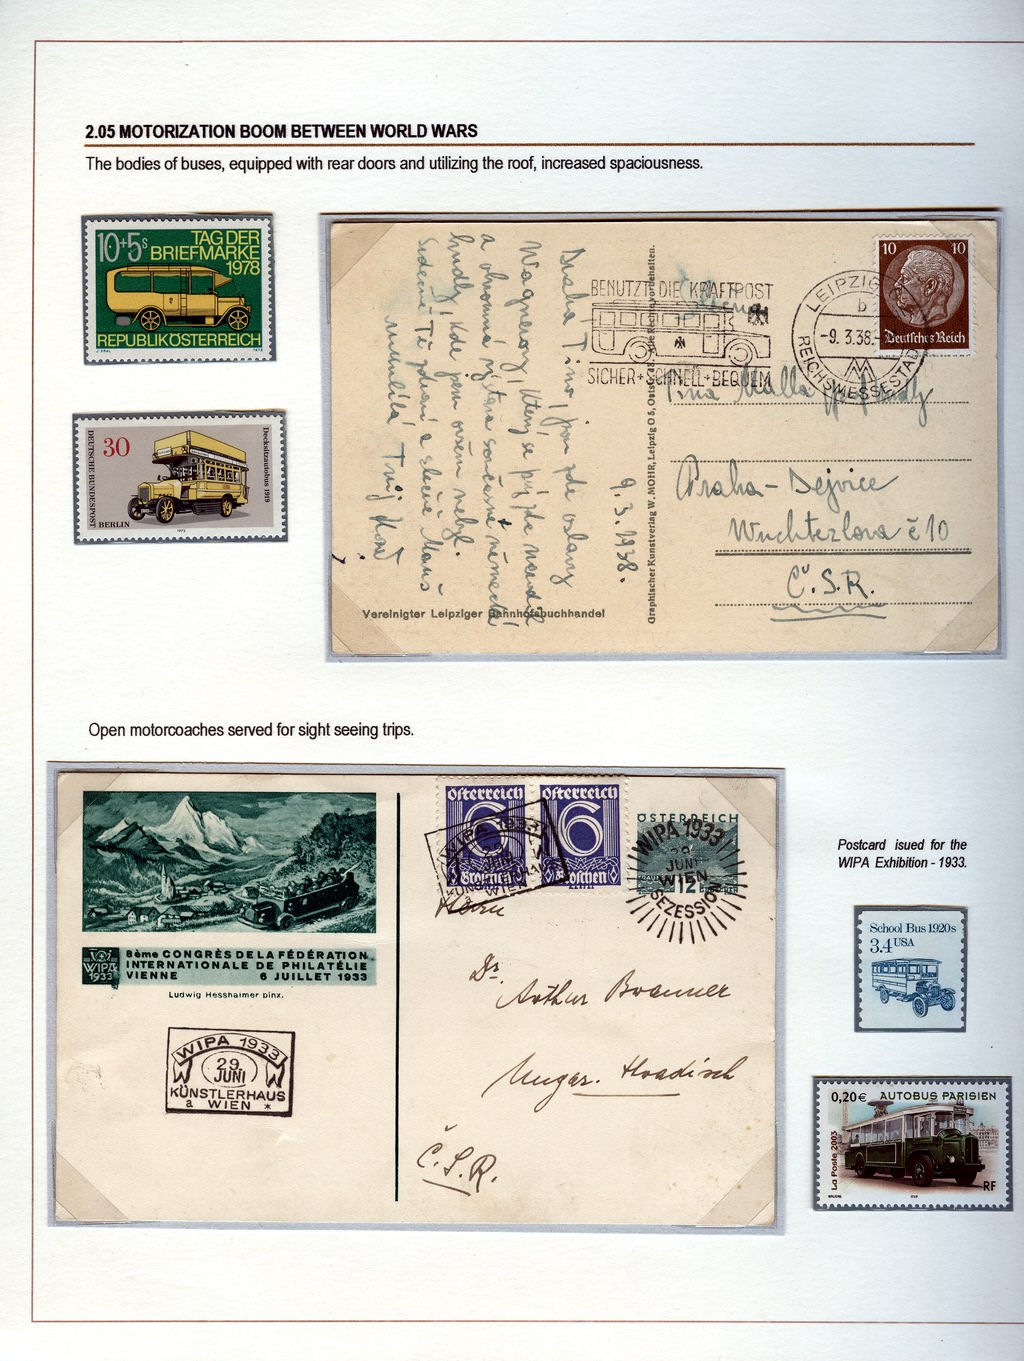 2.05 MOTORIZATION BOOM BETWEEN WORLD WARS
The bodies of buses, equipped with rear doors and utilizing the roof, increased spaciousness.
10+5s
TAG DER
BRIEFMARKE
1978
REPUBLIK ÖSTERREICH
30
DEUTSCHE BUNDESPOST
BERLIN
Decksitzautobus 1919
1973
Drahá Tino, jsou zde oslavy
Wagnerovy,
a ohromná výstava současné německé
hudby, kde jsem ovšem nebyl.
Srdečně Tě zdraví a
Tvůj
9. 3. 1938.
Vereinigter Leipziger Bahnhofsbuchhandel
Graphischer Kunstverlag W. MOHR, Leipzig O 5,
BENUTZT DIE KRAFTPOST
SICHER+SCHNELL+BEQUEM
LEIPZIG
b
-9.3.38.-
REICHSMESSESTADT
10 10
Deutsches Reich
Tina Mallá
Praha-Dejvice
Wuchterlova č 10
Č.S.R.
Open motorcoaches served for sight seeing trips.
WIPA
1933
8ème CONGRÈS DE LA FÉDÉRATION
INTERNATIONALE DE PHILATÉLIE
VIENNE 6 JUILLET 1933
Ludwig Hesshaimer pinx.
WIPA 1933
29.
JUNI
KÜNSTLERHAUS
a WIEN *
Österreich Österreich
6 6
Groschen Groschen
WIPA 1933
JUNI
KÜNSTLERHAUS
WIEN
ÖSTERREICH
12
WIPA 1933
29
JUNI
WIEN
SEZESSION
Herrn
Dr.
Arthur Brammer
Ungar. Hradisch
Č.S.R.
Postcard issued for the
WIPA Exhibition - 1933.
School Bus 1920s
3.4 USA
0,20€ AUTOBUS PARISIEN
La Poste 2003
RF